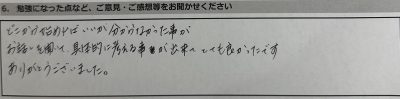 6. 勉強になった点など、ご意見・ご感想等をお聞かせください
どこから始めればいいか分からなかった事が
お話しを聞いて、具体的に考える事が出来て とても良かったです
ありがとうございました。